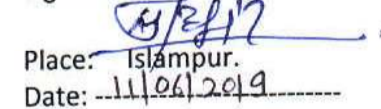 Place: Islampur.
Date: 11/06/2019